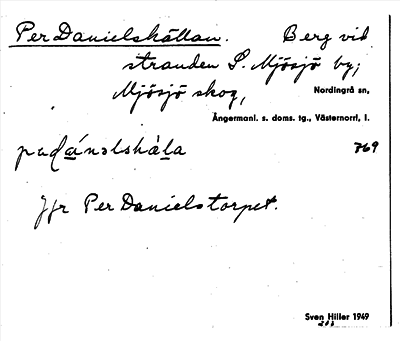 Per Danielshällan. Berg vid
stranden S. Mjösjö by;
Mjösjö skog,
Nordingrå sn,
Ångermanl. s. doms. tg., Västernorrl, l.
769
Jfr Per Danielstorpet.
Sven Hiller 1949